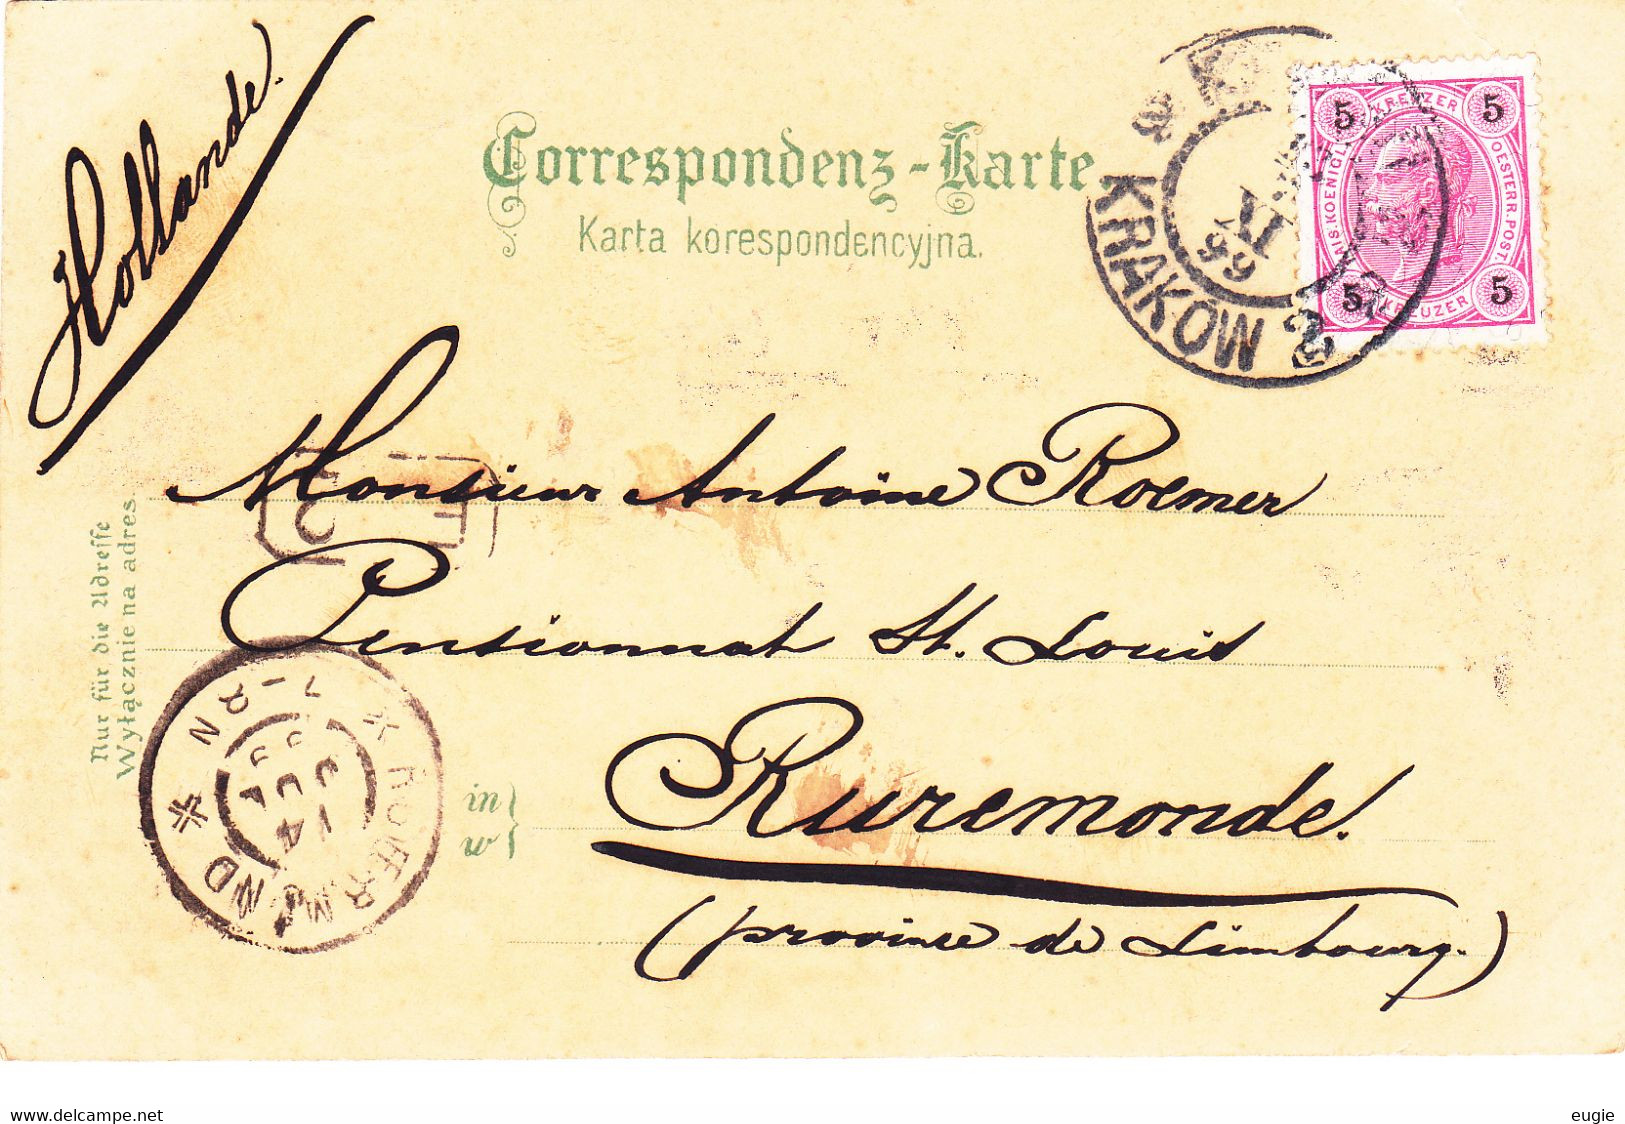 Hollande.
Correspondenz-Karte
Karta korespondencyjna.
KRAKOW 2
XI
99
5 KREUZER 5
KAIS. KOENIGL. OESTERR. POST.
5 KREUZER 5
Monsieur Antoine Roemer
Pensionnat St. Louis
Ruremonde.
(province de Limbourg.)
Nur für die Adresse
Wyłącznie na adres.
in
w
ROERMOND
14
delcampe.net
eugie